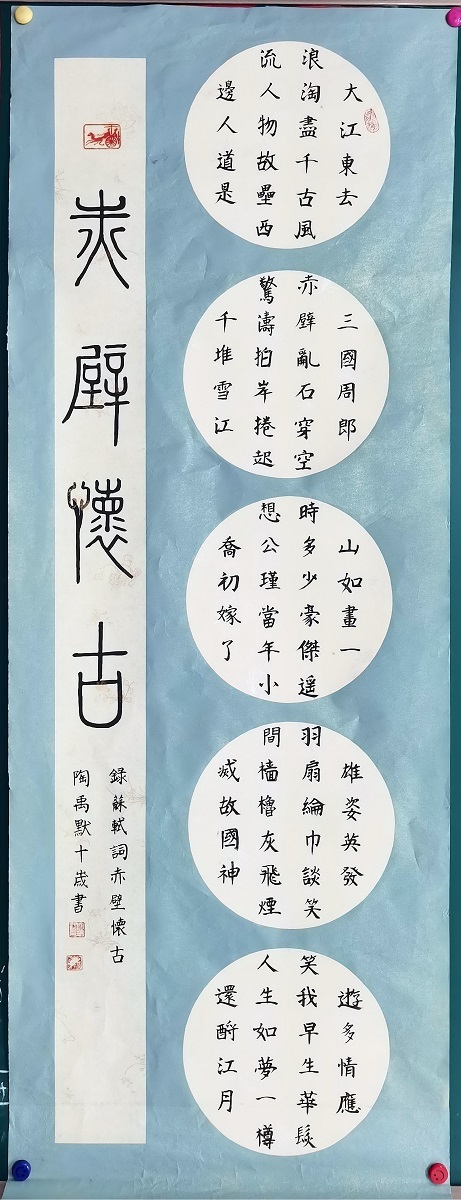 大江東去
浪淘盡千古風
流人物故壘西
邊人道是
三國周郎
赤壁亂石穿空
驚濤拍岸捲起
千堆雪江
山如畫一
時多少豪傑遥
想公瑾當年小
喬初嫁了
雄姿英發
羽扇綸巾談笑
間檣櫓灰飛煙
滅故國神
遊多情應
笑我早生華髮
人生如夢一樽
還酹江月
赤壁懷古
録蘇軾詞赤壁懷古
陶禹默十歲書